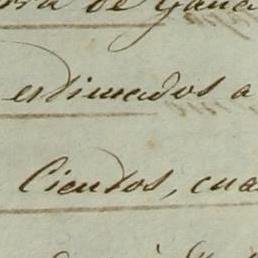 de Gana
erdimados a
Cientos, cua